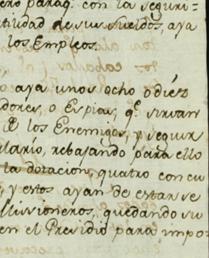 ero paraq.e con la seguri-
tilidad de sus sueldos, aya
los Empleos.
o aya unos ocho ó diez
dores, o Espias, q.e sirvan
los Enemigos, y seguir
ulario, rebajando para ello
la dotacion, quatro con cu
y estos ayan de estar se
Missioneros, quedando su
en el Presidio para impo